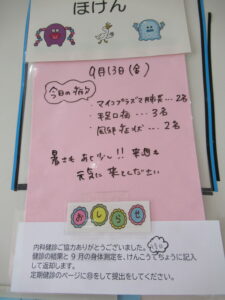 ほけん
9月13日(金)
今日の病気
・マイコプラズマ肺炎…2名
・手足口病…3名
・風邪症状…2名
暑さもあと少し!!来週も
元気に来てください
おしらせ
内科健診ご協力ありがとうございました。
健診の結果と9月の身体測定を、けんこうてちょうに記入
して返却します。
定期健診のページに㊞をして提出をしてください。